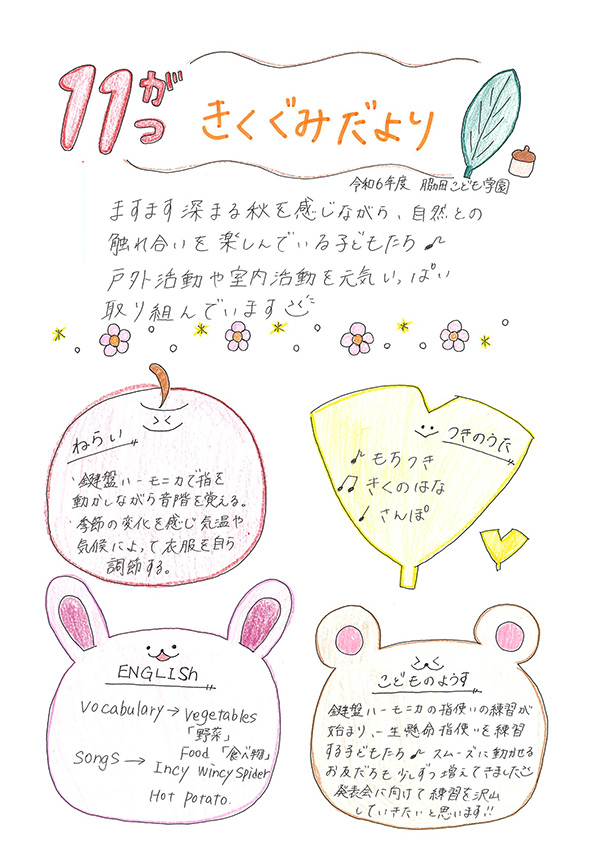 11がつ
きくぐみだより
令和6年度 脇田こども学園
ますます深まる秋を感じながら、自然との
触れ合いを楽しんでいる子どもたち♪
戸外活動や室内活動を元気いっぱい
取り組んでいます
ねらい
・鍵盤ハーモニカで指を
動かしながら音階を覚える。
・季節の変化を感じ気温や
気候によって衣服を自ら
調節する。
つきのうた
♪もちつき
♫きくのはな
♩さんぽ
ENGLISh
Vocabulary→Vegetables
「野菜」
Food「食べ物」
Songs→Incy Wincy Spider
Hot Potato.
こどものようす
鍵盤ハーモニカの指使いの練習が
始まり、一生懸命指使いを練習
する子どもたち♪スムーズに動かせる
お友だちも少しずつ増えてきました
発表会に向けて練習を沢山
していきたいと思います!!